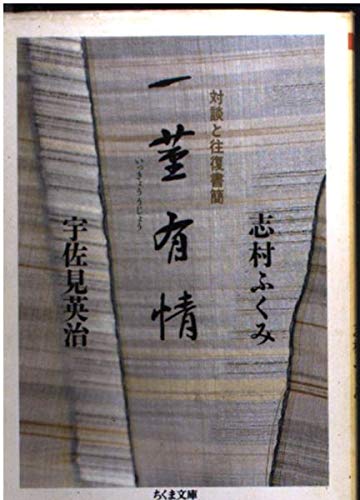 対談と往復書簡
一茎有情
いっきょううじょう
志村ふくみ
宇佐見英治
ちくま文庫